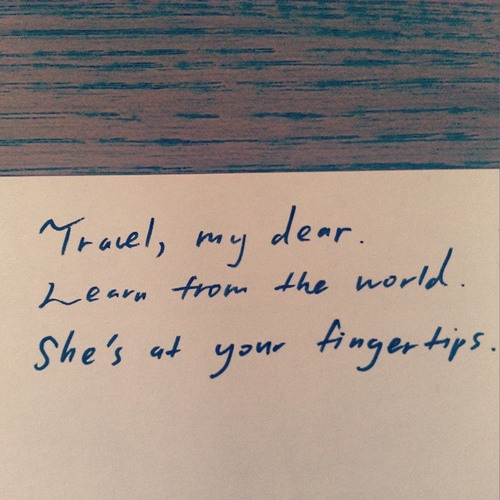 Travel, my dear.
Learn from the world.
She's at your fingertips.